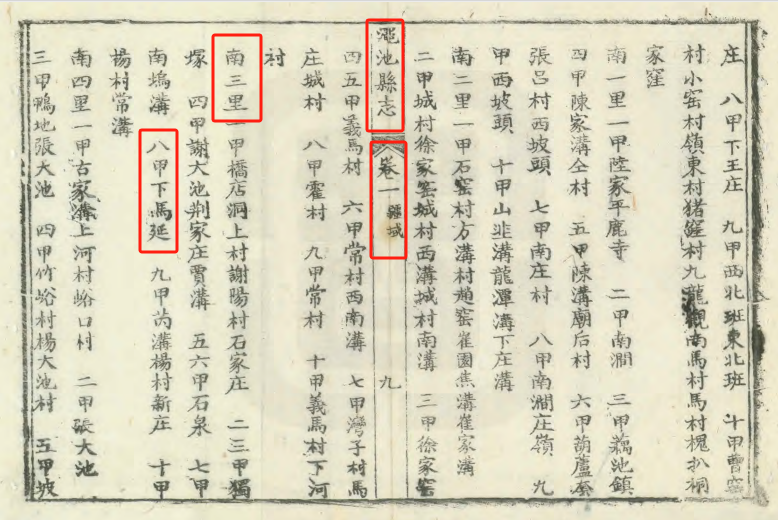 庄　八甲下王庄　九甲西北班東北班　十甲曹窑
村小窑村嶺東村猪窪村九龍觀南馬村馬村槐扒祠
家窪
南一里一甲陸家平鹿寺　二甲南澗　三甲藕池鎮
四甲陳家溝仝村　五甲陳溝廟后村　六甲葫蘆
張呂村西坡頭　七甲南庄村　八甲南澗庄嶺　九
甲西坡頭　十甲山韭溝龍潭溝下庄溝
南二里一甲石窑村方溝村趙窑崔園焦溝崔家溝
二甲城村徐家窑城村西溝城村南溝　三甲徐家窑
澠池縣志　卷一　疆域　九
四五甲義馬村　六甲常村西南溝　七甲灣子村馬
庄城村　八甲霍村　九甲常村　十甲義馬村下河
村
南三里一甲橋店洞上村謝陽村石家庄　二三甲獨
塚　四甲謝大池荆家庄賈溝　五六甲石泉　七甲
南塢溝　八甲下馬延　九甲芮溝楊村新庄　十甲
楊村常溝
南四里一甲古家溝上河村峪口村　二甲張大池
三甲鴨地張大池　四甲竹峪村楊大池村　五甲坡